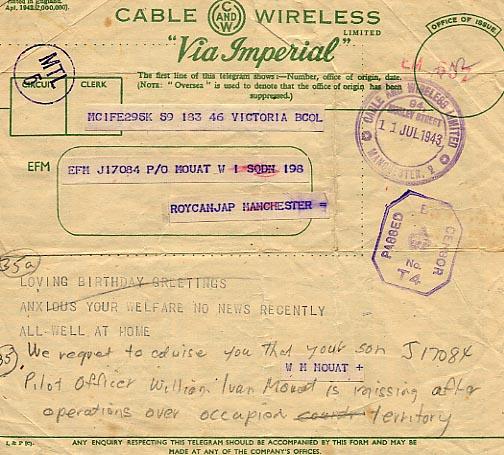 Printed in England.
Apr. 1943. (2,000,000.)
CABLE C AND W WIRELESS
LIMITED
"Via Imperial"
OFFICE OF ISSUE
The first line of this telegram shows:—Number, office of origin, date.
(NOTE: "Oversea" is used to denote that the office of origin has been
suppressed.)
MTL
5
CIRCUIT
CLERK
MC1FE295K 59 183 46 VICTORIA BCOL
CABLE AND WIRELESS LIMITED
11 JUL 1943
MANCHESTER. 2
EFM
EFM J17084 P/O MOUAT W I SQDN 198
ROYCANJAP MANCHESTER =
PASSED
CENSOR
No.
T4
35a
LOVING BIRTHDAY GREETINGS
ANXIOUS YOUR WELFARE NO NEWS RECENTLY
ALL WELL AT HOME
35
We regret to advise you that your son J17084
W M MOUAT +
Pilot Officer William Ivan Mouat is missing after
operations over occupion territory
L & P (C).
ANY ENQUIRY RESPECTING THIS TELEGRAM SHOULD BE ACCOMPANIED BY THIS FORM AND MAY BE
MADE AT ANY OF THE COMPANY'S OFFICES.